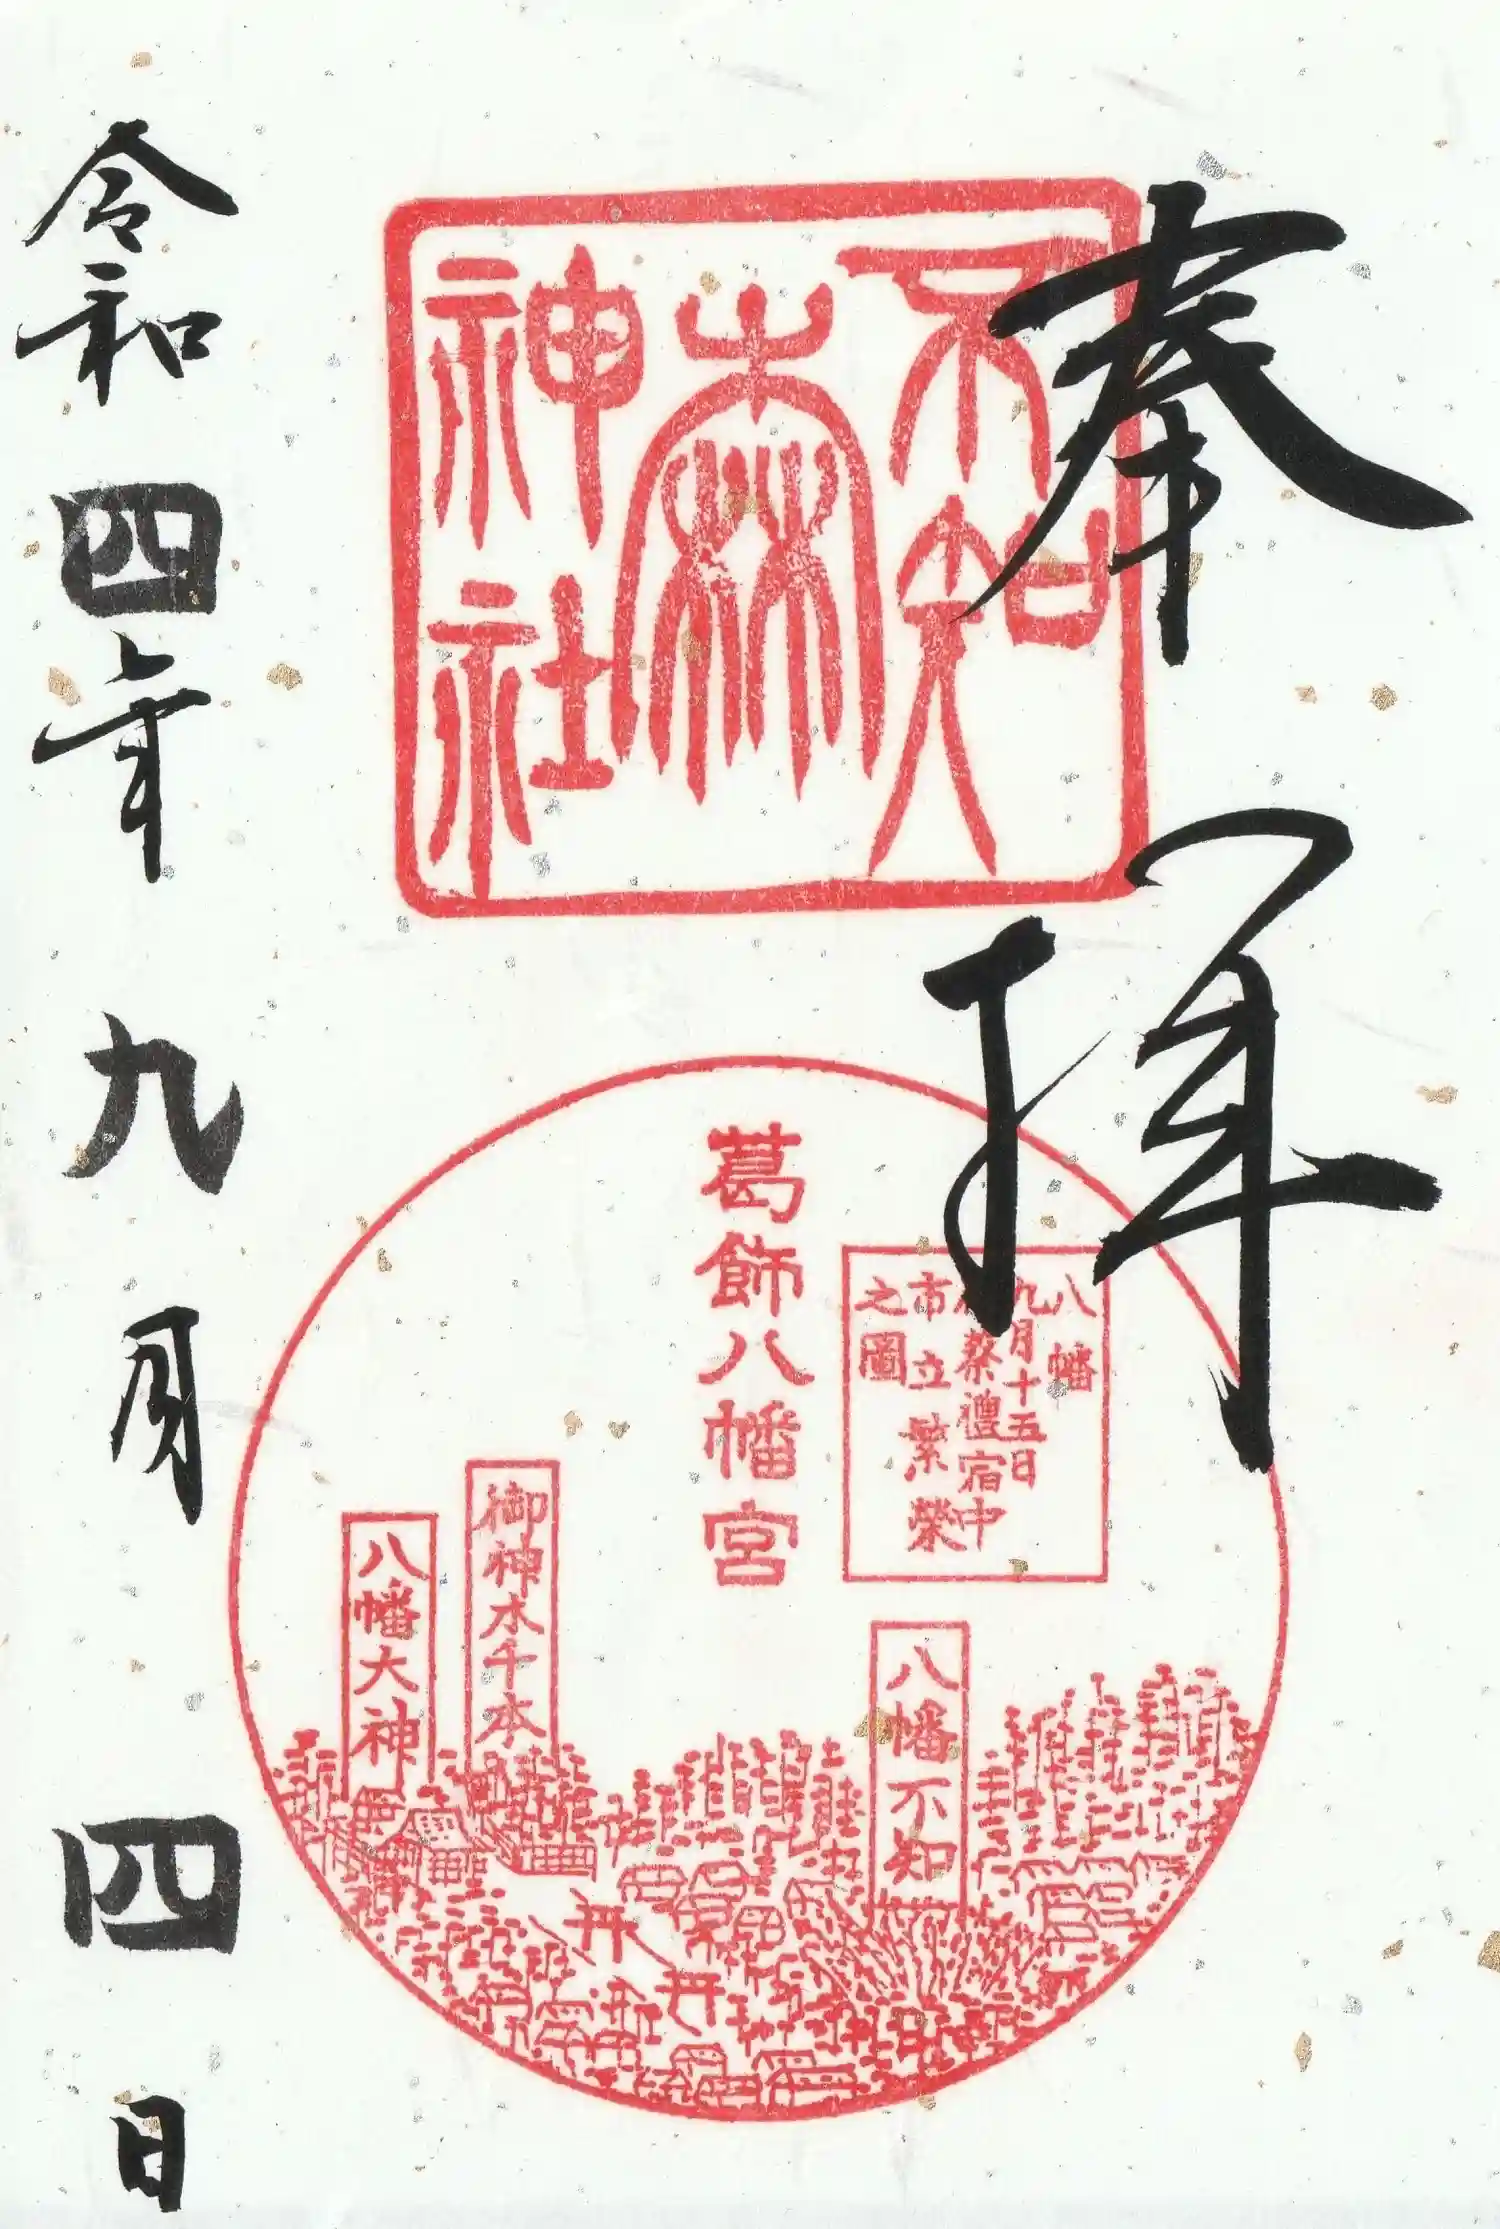 奉拝
不知
森
神社
葛飾八幡宮
八幡
九月十五日
祭禮宿中
市立繁榮
之圖
御神木千本
八幡大神
八幡不知
令和四年九月四日